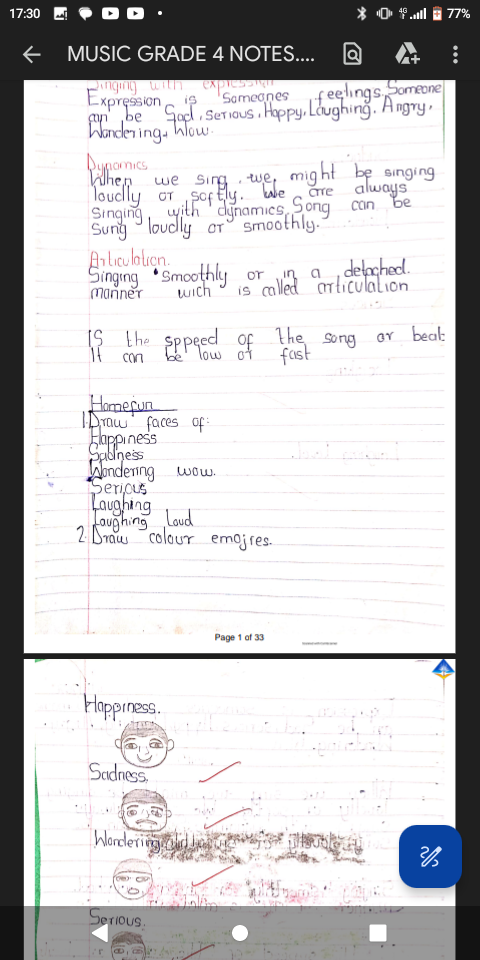 17:30
4G
77%
MUSIC GRADE 4 NOTES....
Singing with expression
Expression is Someones feelings. Someone
can be Sad, Serious, Happy, Laughing, Angry,
Wondering, Wow.
Dynamics
When we sing, we might be singing
loudly or softly. We are always
singing with dynamics. Song can be
sung loudly or smoothly.
Articulation.
Singing smoothly or in a detached.
manner wich is called articulation
IS the sppeed of the song or beat
It can be low of fast
Homefun
1. Draw faces of:
Happiness
Sadness
Wondering wow.
Serious
Laughing
Laughing Loud
2. Draw colour emojies.
Page 1 of 33
Happiness.
Sadness,
Wondering
Serious.